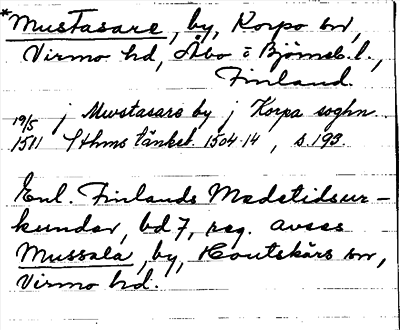 *Mustasare, by, Korpo sn,
Virmo hd, Åbo o Björneb. l.,
Finland.
19/5 j Mwstasare by j Korpa soghn
1511 Sthms tänkeb. 1504-14, s. 193.
Enl. Finlands Medeltidsur-
kunder, bd 7, reg. avses
Mussala, by, Houtskärs sn,
Virmo hd.